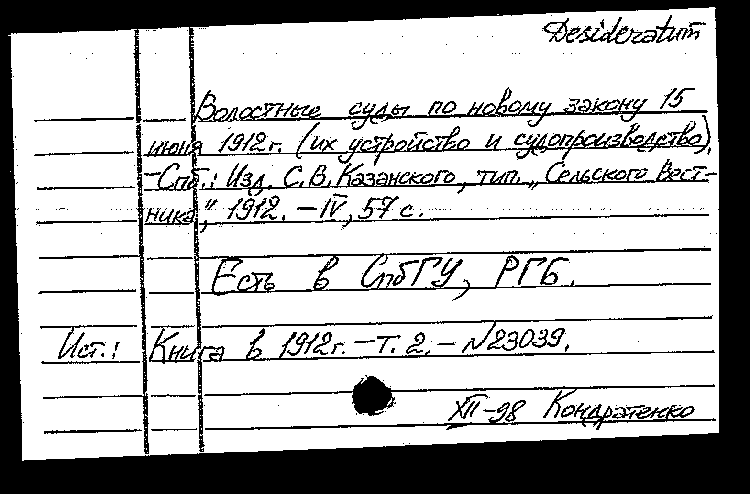 Desideratum
Волостные суды по новому закону 15
июня 1912 г. (их устройство и судопроизводство).
-Спб.: Изд. С.В. Казанского, тип. „Сельского Вест-
ника", 1912. - IV, 57 с.
Есть в СпбГУ, РГБ.
Ист.: Книга в 1912 г. - Т. 2. - N23039.
XII-98 Кондратенко